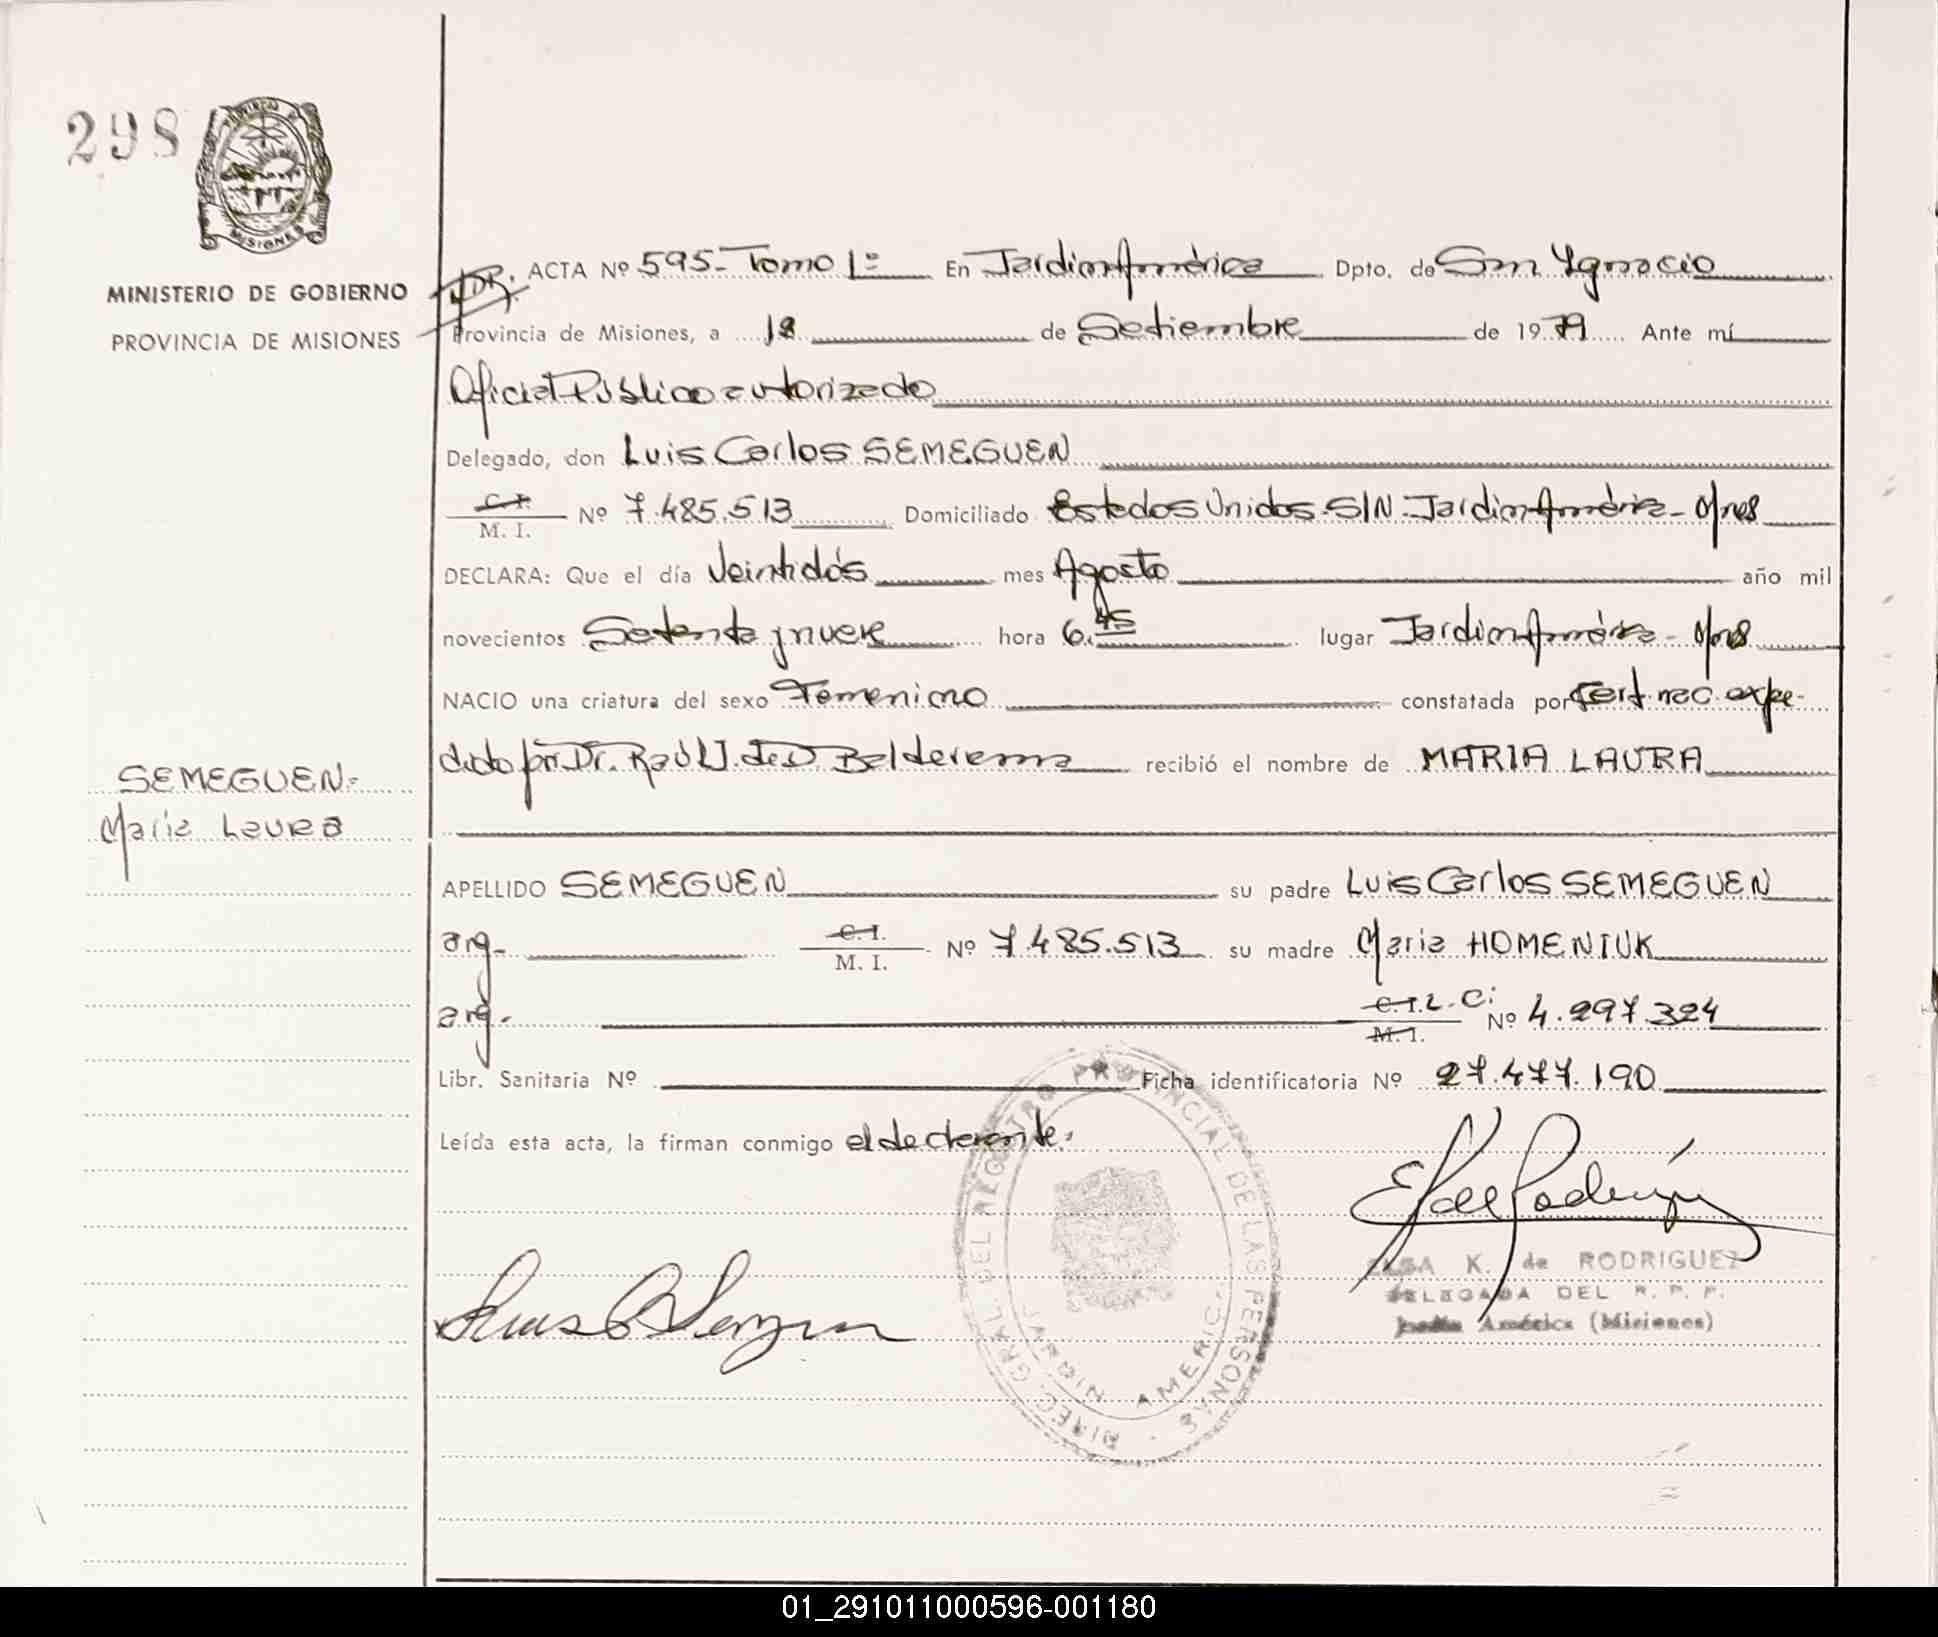 298
PROVINCIA DE
MISIONES
MINISTERIO DE GOBIERNO
PROVINCIA DE MISIONES
ACTA Nº 595- Tomo 1º En Jardin América Dpto. de San Ygnacio
Provincia de Misiones, a 18 de Setiembre de 1979 Ante mí
Oficial Público autorizado
Delegado, don Luis Carlos SEMEGUEN
C. I. / M. I. Nº 7.485.513 Domiciliado Estados Unidos S/N-Jardin América- Mnes
DECLARA: Que el día Veintidós mes Agosto año mil
novecientos Setenta y nueve hora 6.45 lugar Jardin América- Mnes
NACIO una criatura del sexo Femenino constatada por Cert. nac. expe-
dido por Dr. Raúl J. de D. Balderema recibió el nombre de MARIA LAURA
SEMEGUEN=
Maria Laura
APELLIDO SEMEGUEN su padre Luis Carlos SEMEGUEN
arg- C. I. / M. I. Nº 7.485.513 su madre Maria HOMENIUK
arg. C. I. L. C. / M. I. Nº 4.297.324
Libr. Sanitaria Nº Ficha identificatoria Nº 27.477.190
Leída esta acta, la firman conmigo el declarante.
DIREC. GRAL. DEL REGISTRO PROVINCIAL DE LAS PERSONAS
JARDIN AMERICA
ELSA K. de RODRIGUEZ
DELEGADA DEL R. P. P.
Jardin América (Misiones)
01_291011000596-001180